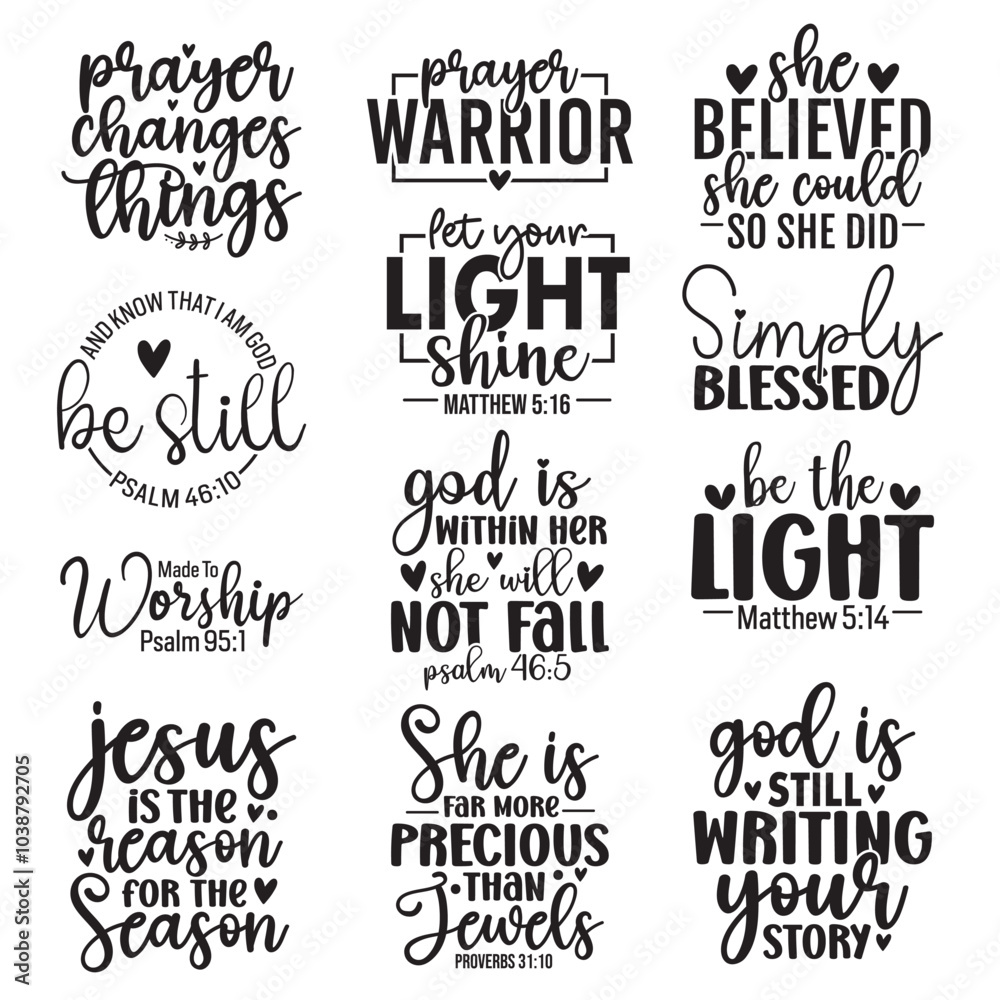 prayer
changes
things
prayer
WARRIOR
she
BELIEVED
she could
SO SHE DID
AND KNOW THAT I AM GOD
be still
PSALM 46:10
let your
LIGHT
shine
MATTHEW 5:16
Simply
BLESSED
Made To
Worship
Psalm 95:1
god is
WITHIN HER
she will
NOT FALL
psalm 46:5
be the
LIGHT
Matthew 5:14
jesus
IS THE
reason
FOR THE
Season
She is
FAR MORE
PRECIOUS
THAN
Jewels
PROVERBS 31:10
god is
STILL
WRITING
your
STORY
Adobe Stock | #1038792705